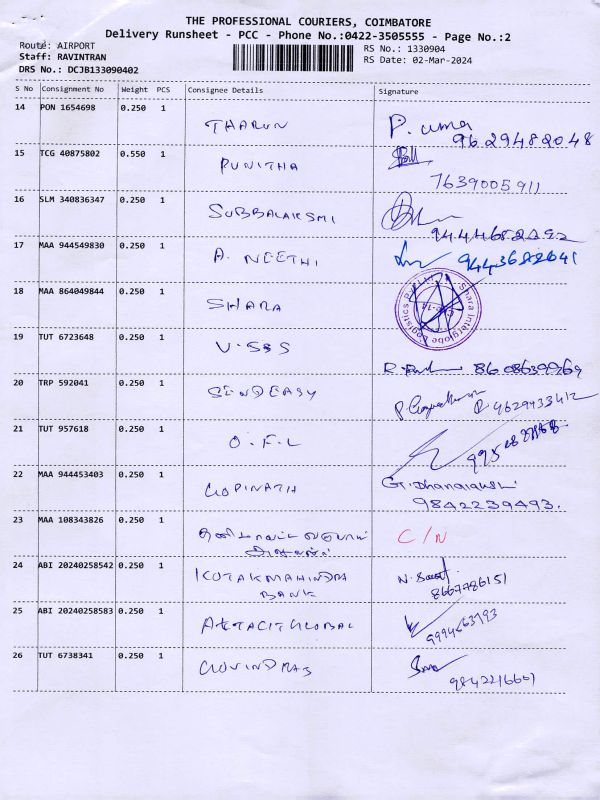 THE PROFESSIONAL COURIERS, COIMBATORE
Delivery Runsheet - PCC - Phone No.:0422-3505555 - Page No.:2
Route: AIRPORT
Staff: RAVINTRAN
DRS No.: DCJB133090402
RS No.: 1330904
RS Date: 02-Mar-2024
S No Consignment No Weight PCS Consignee Details Signature
14 PON 1654698 0.250 1 THARUN P. uma
9629482048
15 TCG 40875802 0.550 1 PUNITHA
7639005911
16 SLM 340836347 0.250 1 SUBBALAKSMI
17 MAA 944549830 0.250 1 A. NEETHI
18 MAA 864049844 0.250 1 SHARA Shara Interglobe Logistics
19 TUT 6723648 0.250 1 V-SBS
8608639969
20 TRP 592041 0.250 1 SENDEASY
9629433412
21 TUT 957618 0.250 1 O.F.L
22 MAA 944453403 0.250 1 GOPINATH
9842239493.
23 MAA 108343826 0.250 1 C/N
24 ABI 20240258542 0.250 1 KOTAK MAHINDRA
BANK
8667786151
25 ABI 20240258583 0.250 1
26 TUT 6738341 0.250 1 GOVINDRAJ